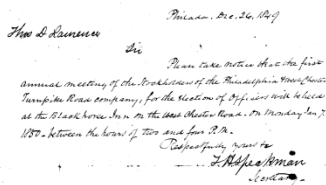 Philada, Dec. 26, 1849
Thos D. Lawrence
Sir
Please take notice that the first
annual meeting of the Stockholders of the Philadelphia & West Chester
Turnpike Road company, for the Election of Officers will be held
at the Black horse Inn on the West Chester Road. on Monday Jan. 7,
1850 - between the hours of two and four P.M.
Respectfully yours &c
Speakman
Secretary